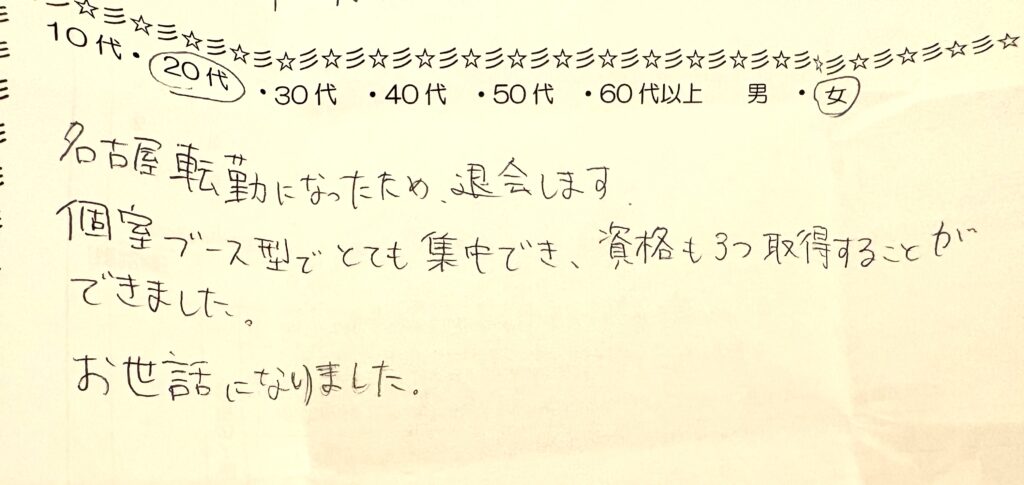 10代・20代・30代・40代・50代・60代以上 男・女
名古屋転勤になったため、退会します.
個室ブース型でとても集中でき、資格も3つ取得することが
できました。
お世話になりました。